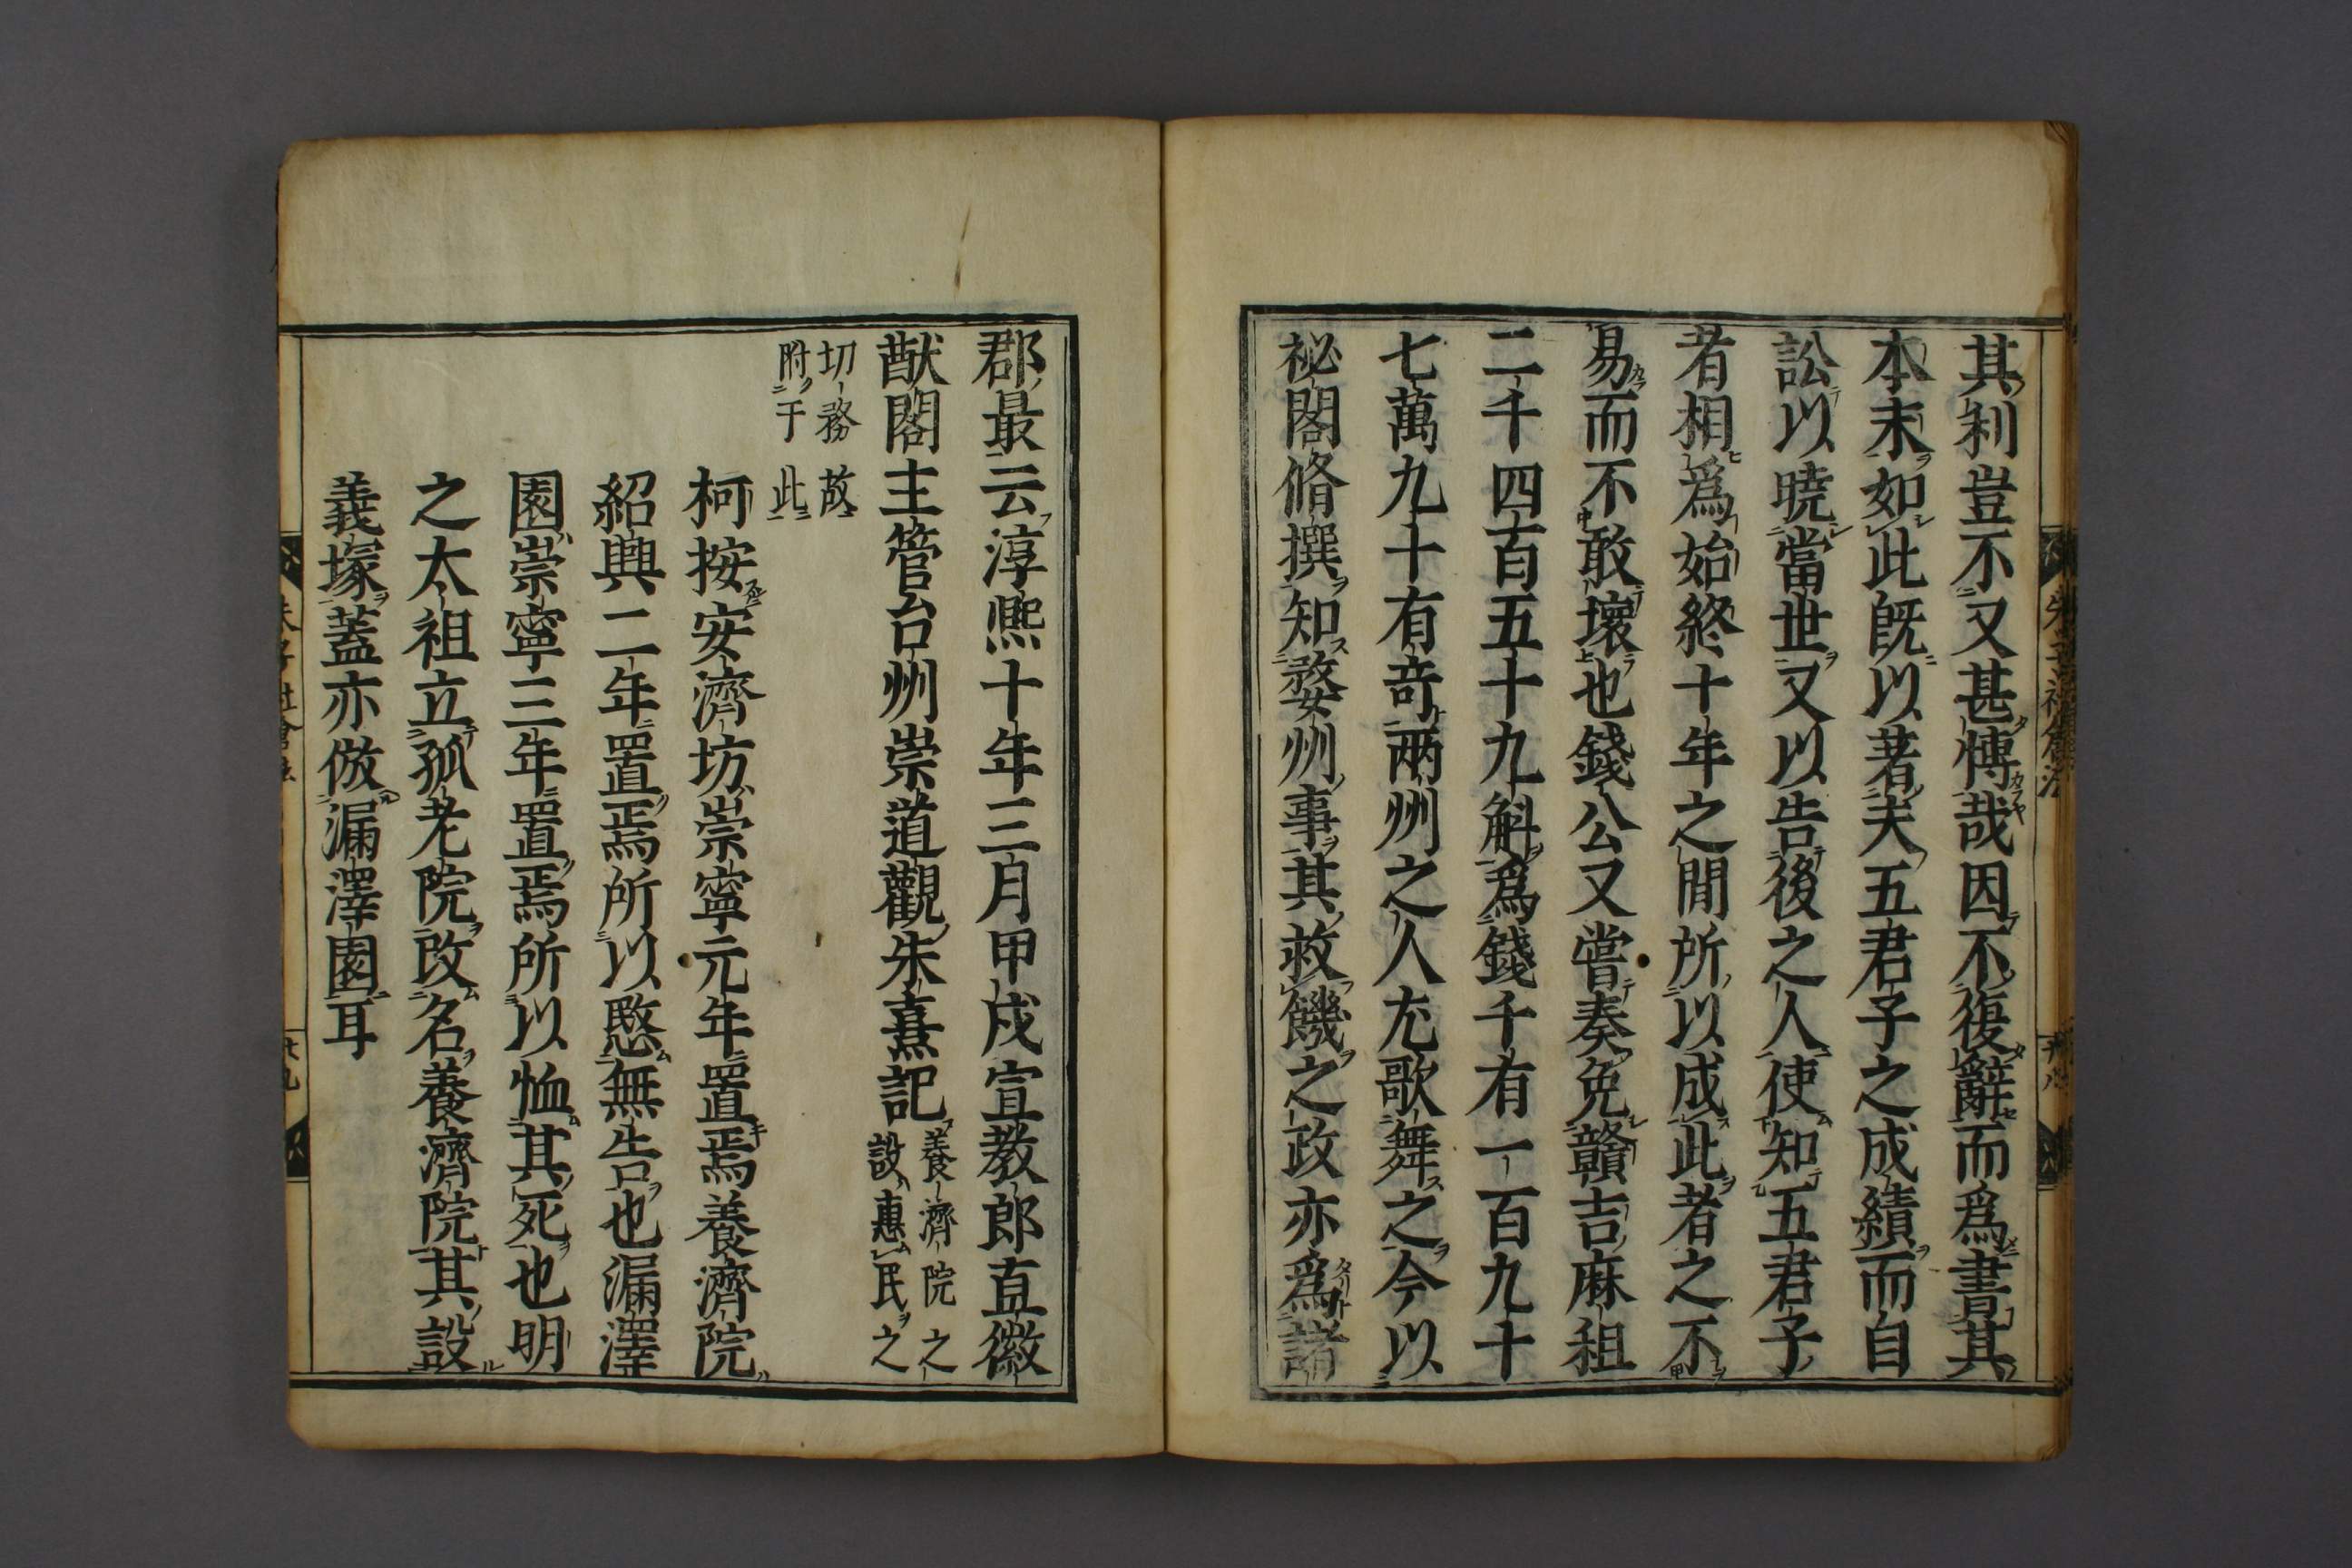 其利豈不又甚慱哉因不復辭而爲書其
本末如此既以著夫五君子之成績而自
訟以曉當世又以告後之人使知五君子
者相爲始終十年之間所以成此者之不
易而不敢壞也錢公又嘗奏免贛吉麻租
二千四百五十九斛爲錢千有一百九十
七萬九十有竒兩州之人尤歌舞之今以
祕閣脩撰知婺州事其救饑之政亦爲諸
郡最云淳熈十年三月甲戍宣教郎直徽
猷閣主管台州崇道觀朱熹記養濟院之
設惠民之
切務故
附于此
柯按安濟坊崇寧元年置焉養濟院
紹興二年置焉所以愍無告也漏澤
園崇寧三年置焉所以恤其死也明
之太祖立孤老院改名養濟院其設
義塚蓋亦倣漏澤園耳